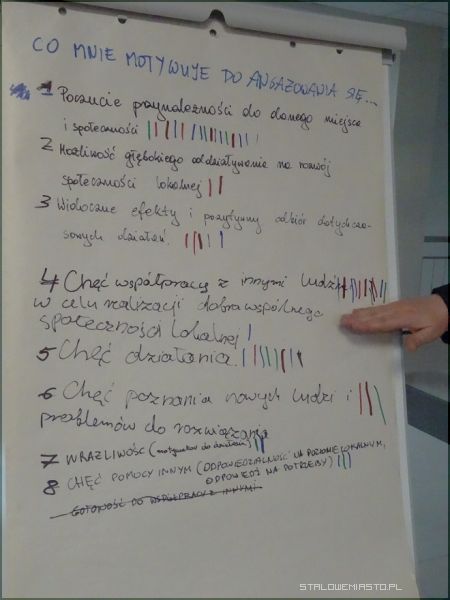 CO MNIE MOTYWUJE DO ANGAŻOWANIA SIĘ...
1 Poczucie przynależności do danego miejsca
i społeczności
2 Możliwość głębokiego oddziaływania na rozwój
społeczności lokalnej
3 Widoczne efekty i pozytywny odbiór dotychcza-
sowych działań.
4 Chęć współpracy z innymi ludźmi
w celu realizacji dobra wspólnego
społeczności lokalnej
5 Chęć działania.
6 Chęć poznania nowych ludzi i
problemów do rozwiązania
7 WRAŻLIWOŚĆ (motywator do działania)
8 CHĘĆ POMOCY INNYM (ODPOWIEDZIALNOŚĆ NA POZIOMIE LOKALNYM,
ODPOWIEDŹ NA POTRZEBY)
GOTOWOŚĆ DO WSPÓŁPRACY Z INNYMI
STALOWEMIASTO.PL